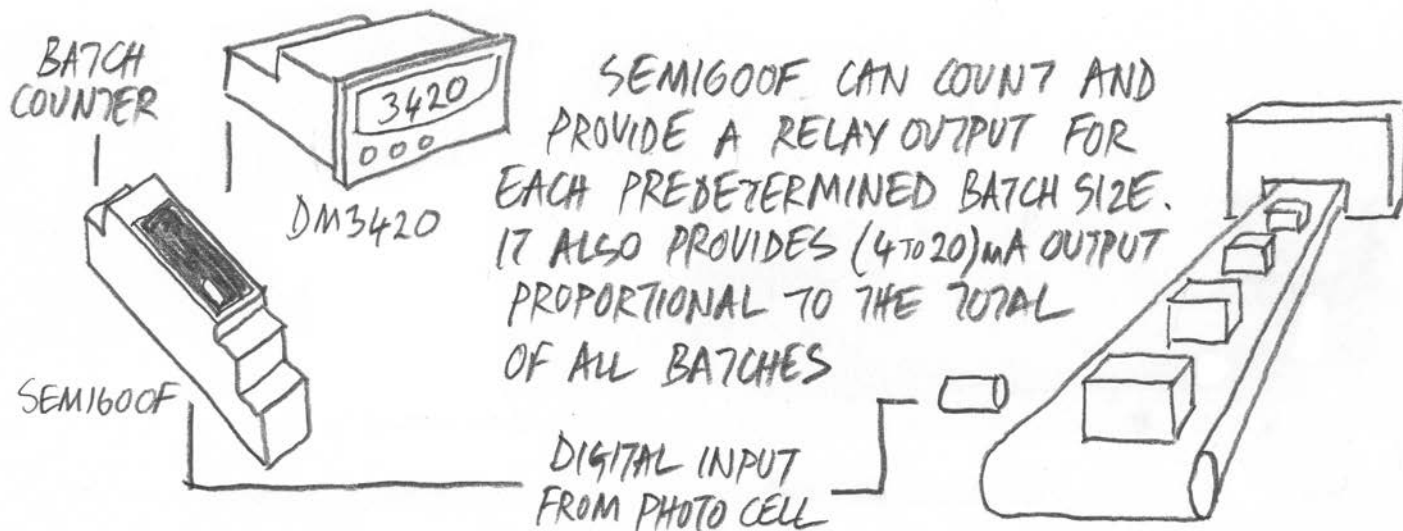 BATCH
COUNTER
3420
DM3420
SEM1600F CAN COUNT AND
PROVIDE A RELAY OUTPUT FOR
EACH PREDETERMINED BATCH SIZE.
IT ALSO PROVIDES (4 TO 20)mA OUTPUT
PROPORTIONAL TO THE TOTAL
OF ALL BATCHES
SEM1600F
DIGITAL INPUT
FROM PHOTO CELL